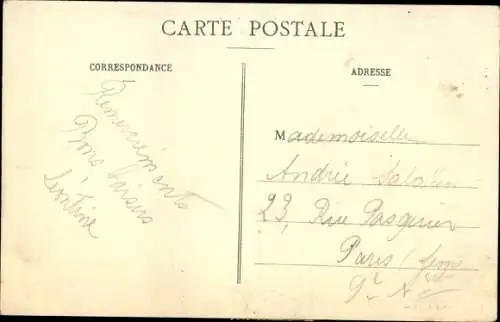 CARTE POSTALE
CORRESPONDANCE
Remerciements
Bons baisers
Léontine
ADRESSE
Mademoiselle
Andrée
23, Rue Pasquier
Paris